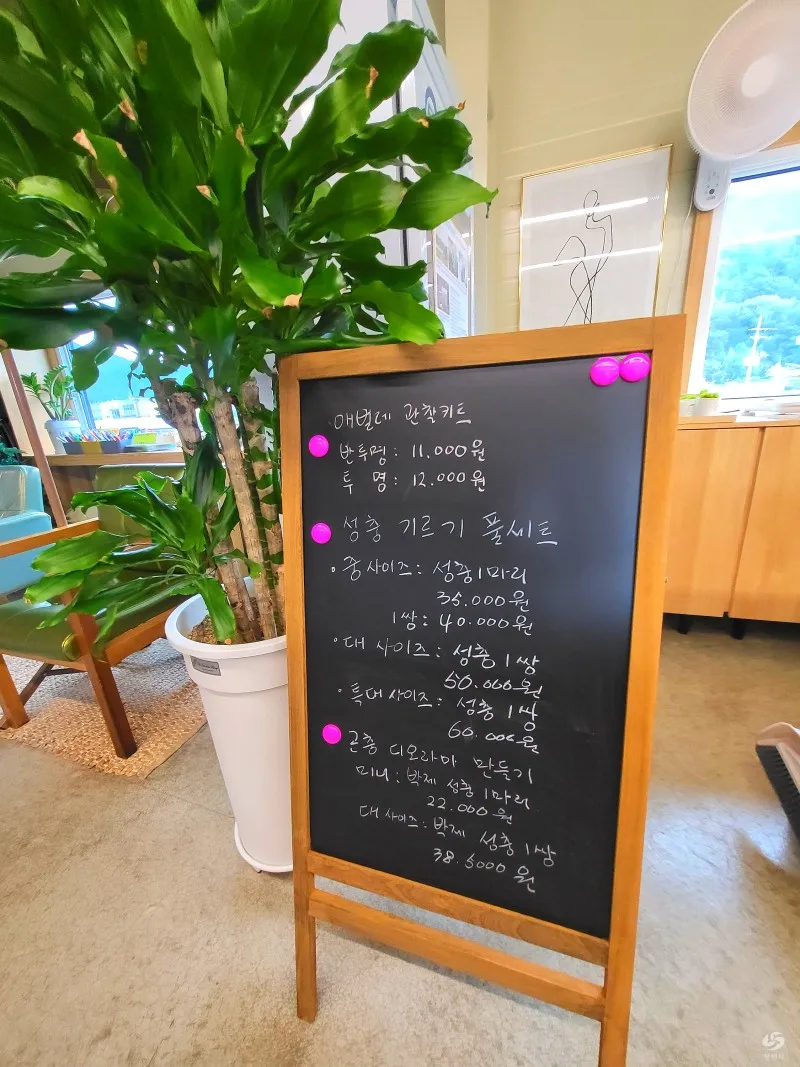 애벌레 관찰키트
반투명: 11.000원
투 명: 12.000원
성충 기르기 풀세트
· 중 사이즈: 성충 1마리
35.000원
1쌍: 40.000원
· 대 사이즈: 성충 1쌍
50.000원
· 특대 사이즈: 성충 1쌍
60.000원
곤충 디오라마 만들기
미니: 박제 성충 1마리
22.000원
대 사이즈: 박제 성충 1쌍
38.5000원